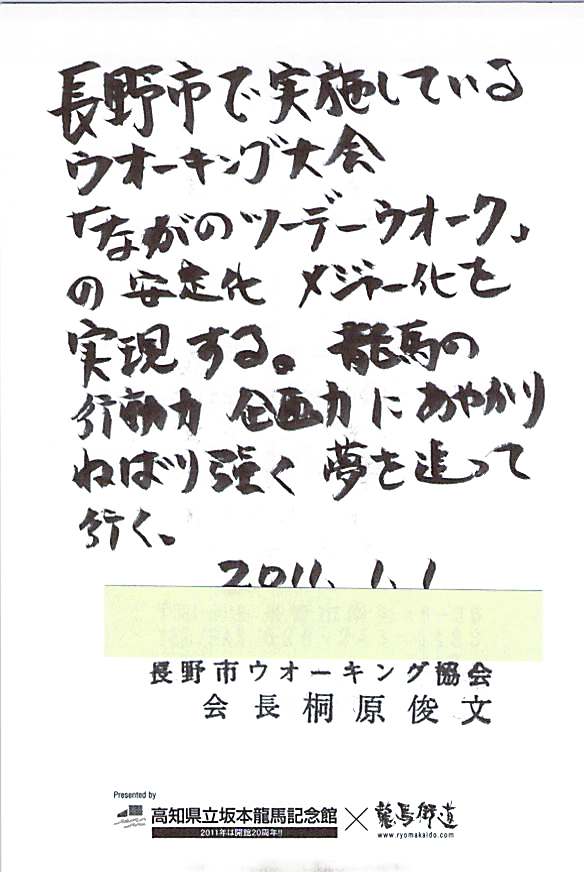 長野市で実施している
ウオーキング大会
「ながのツーデーウオーク」
の安定化 メジャー化を
実現する。龍馬の
行動力 企画力にあやかり
ねばり強く 夢を追って
行く。
2011.1.1
長野市ウオーキング協会
会長 桐原俊文
Presented by
高知県立坂本龍馬記念館
2011年は開館20周年!!
×
龍馬街道
www.ryomakaido.com